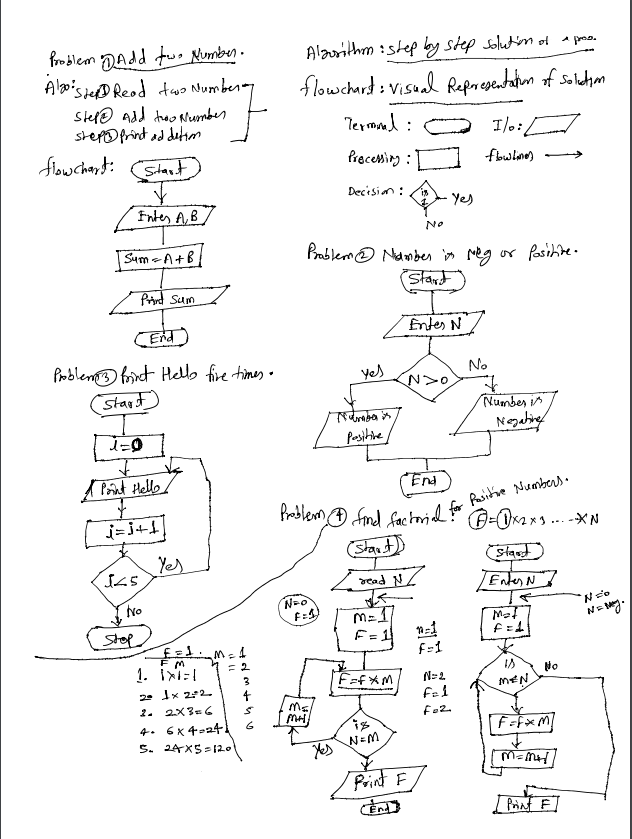 Problem ① Add two Number.
Algo: Step① Read two Number
Step② Add two Number
Step③ Print addition
flowchart:
Start
Enter A,B
Sum = A + B
Print Sum
End
Algorithm : Step by step solution of a
flowchart : Visual Representation of solution
Terminal : I/o :
Processing : flowlines
Decision : is
Yes
No
Problem ② Number is Neg or Positive.
Start
Enter N
Yes
N>0
No
Number is
Positive
Number is
Negative
End
Problem ③ Print Hello five times.
Start
i=0
Print Hello
i=i+1
i<5
Yes
No
Stop
Problem ④ find factorial for Positive Numbers.
F=1×2×3 .... ×N
Start
read N
N=0
F=1
M=1
F=1
F=F*M
M=
M+1
is
N=M
Yes
Print F
End
M=1
F=1
N=2
F=1
F=2
Start
Enter N
N=0
N=Neg.
F=1
is
No
F=F*M
M=M+1
Print F
F=1 M=1
F M =2
1. 1×1=1 3
2. 1×2=2 4
3. 2×3=6 5
4. 6×4=24 6
5. 24×5=120